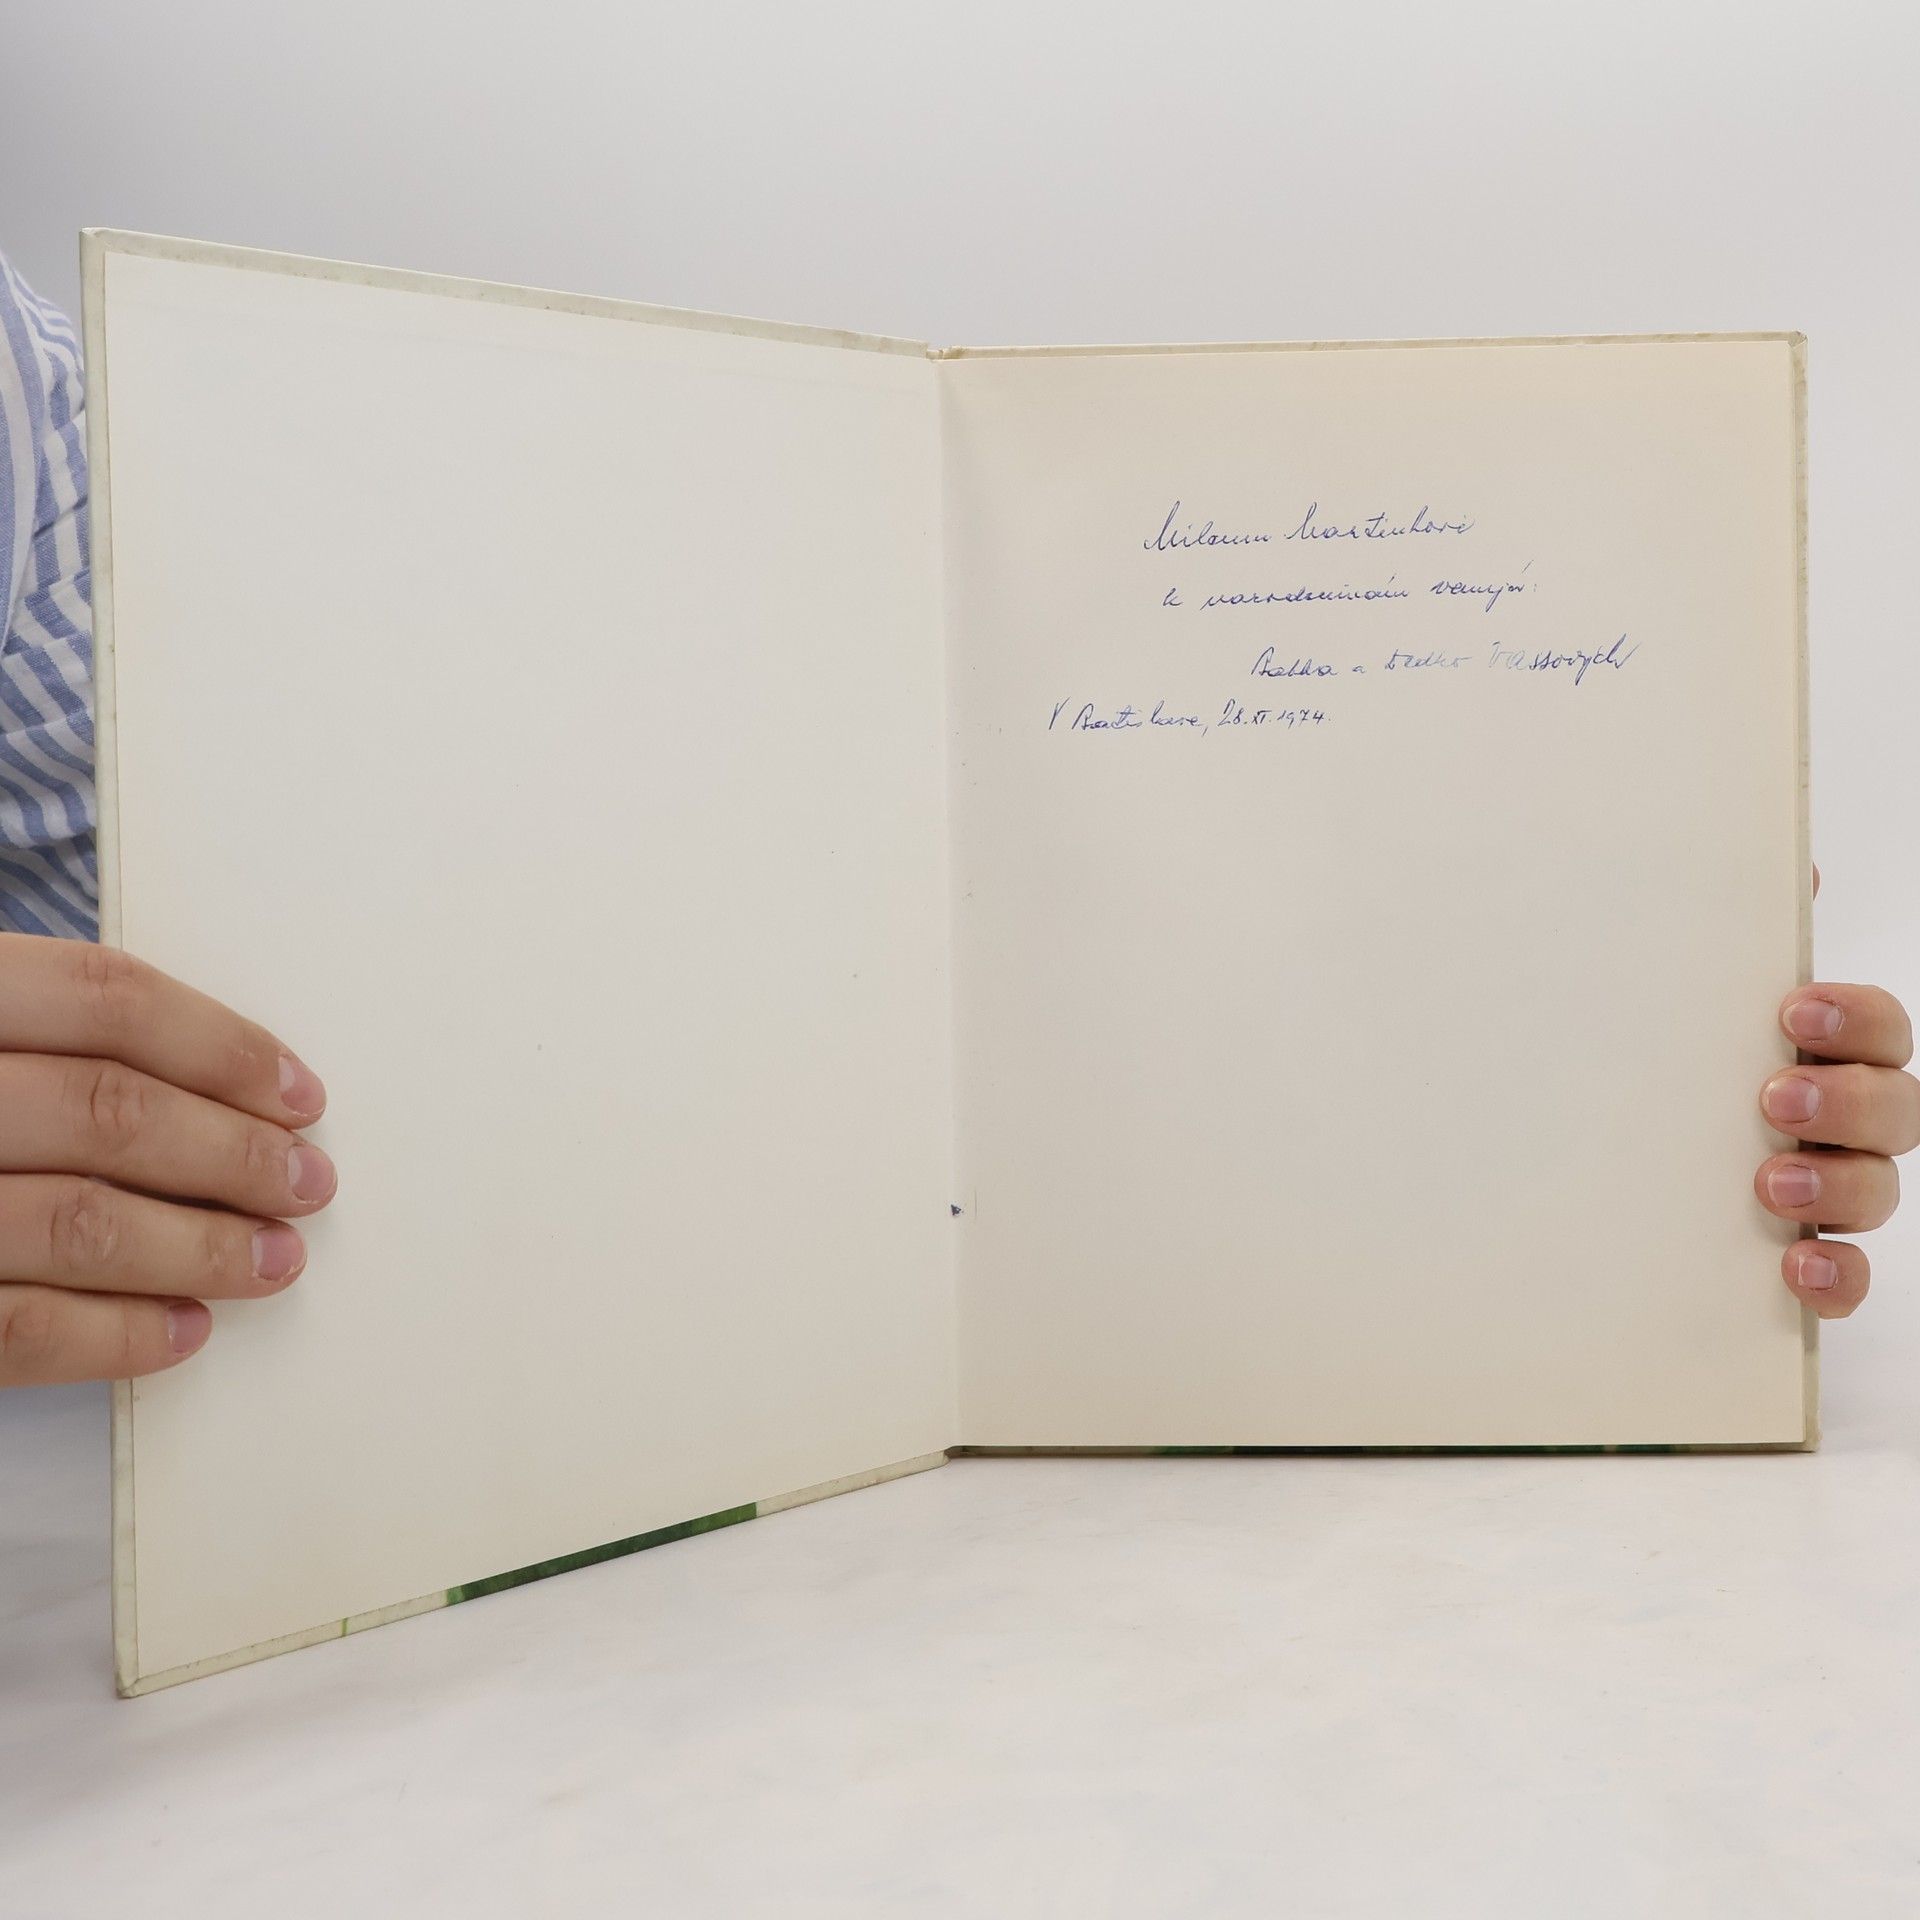 Milanu Martinkovi
k narodeninám venujú:
Babka a Dedko Vassových
V Bratislave, 28. XI. 1974.